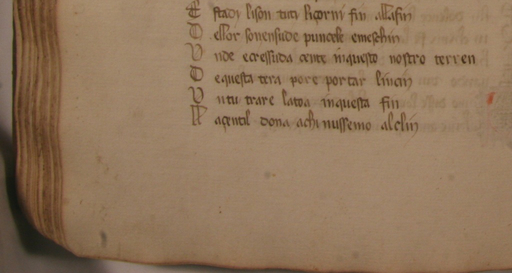 E stadi lison tuti licorni fin allafin
D ellor sonensude puncele emeschin
U nde ecressuda cente inquesto nostro terren
D equesta tera pore portar lincin
U ntu trare latoa inquesta fin
A agentil dona achi nussemo alclin